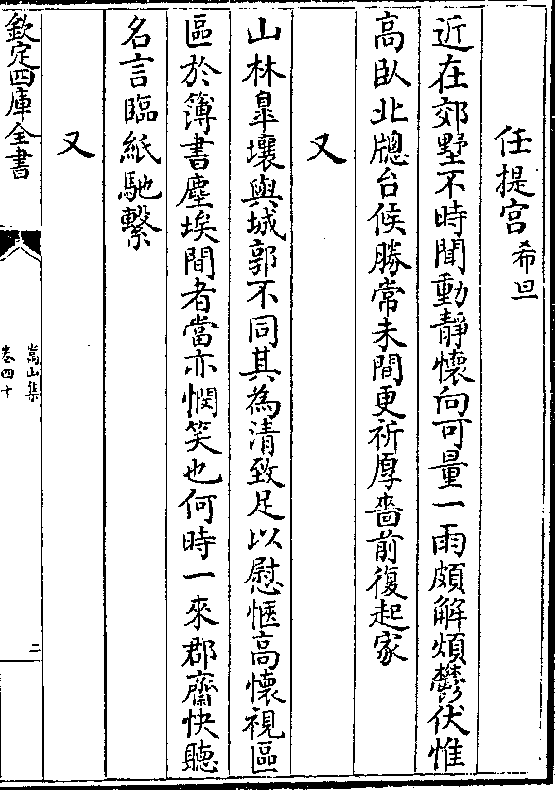 任提宫希旦
近在郊墅不時聞動靜懷向可量一雨頗解煩鬱伏惟
高臥北牎台候勝常未間更祈厚嗇前復起家
又
山林臯壤與城郭不同其為清致足以慰愜高懷視區
區於簿書塵埃間者當亦憫笑也何時一來郡齋快聽
名言臨紙馳繫
又
欽定四庫全書
嵩山集
卷四十
二